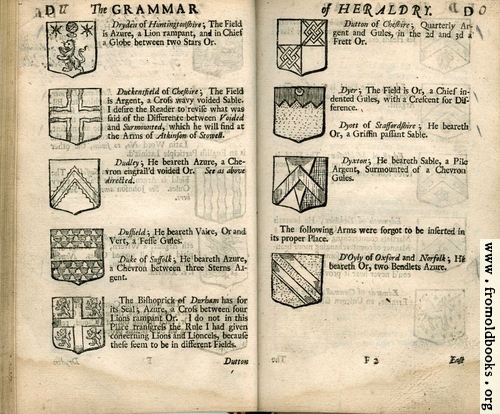 DU The GRAMMAR
Dryden of Huntingtonshire; The Field
is Azure, a Lion rampant, and in Chief
a Globe between two Stars Or.
Duckensfield of Cheshire; The Field
is Argent, a Cross wavy voided Sable.
I desire the Reader to revise what was
said of the Difference between Voided
and Surmounted, which he will find at
the Arms of Atkinson of Stowell.
Dudley; He beareth Azure, a Che-
vron engrail'd voided Or. See as above
directed.
Duffield; He beareth Vaire, Or and
Vert, a Fesse Gules.
Duke of Suffolk; He beareth Azure,
a Chevron between three Sterns Ar-
gent.
The Bishoprick of Durham has for
its Seal; Azure, a Cross between four
Lions rampant Or. I do not in this
Place transgress the Rule I had given
concerning Lions and Lioncels, because
these seem to be in different Fields.
Dutton
of HERALDRY. DO
Dutton of Cheshire; Quarterly Ar-
gent and Gules, in the 2d and 3d a
Frett Or.
Dyer; The Field is Or, a Chief in-
dented Gules, with a Crescent for Dif-
ference.
Dyott of Staffordshire; He beareth
Or, a Griffin passant Sable.
Dyxton; He beareth Sable, a Pile
Argent, Surmounted of a Chevron
Gules.
The following Arms were forgot to be inserted in
its proper Place.
D'Oyly of Oxford and Norfolk; He
beareth Or, two Bendlets Azure.
F 2 East
www.fromoldbooks.org